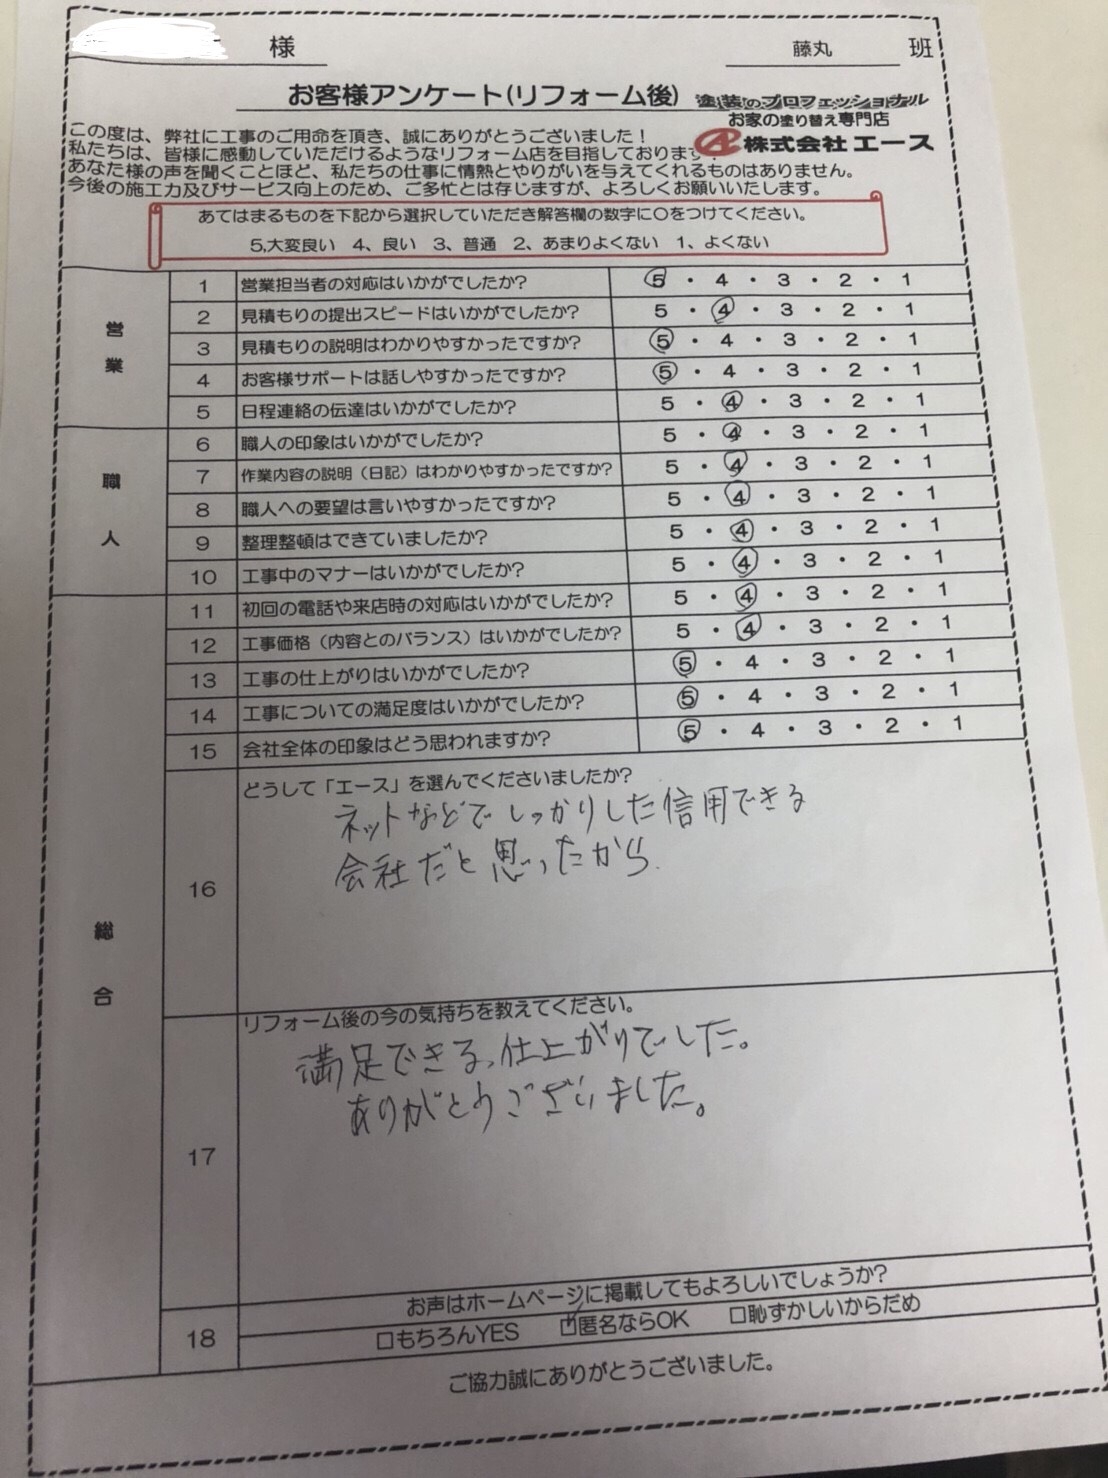 様 藤丸 班
お客様アンケート(リフォーム後)
塗装のプロフェッショナル
お家の塗り替え専門店
株式会社エース
この度は、弊社に工事のご用命を頂き、誠にありがとうございました！
私たちは、皆様に感動していただけるようなリフォーム店を目指しております。
あなた様の声を聞くことほど、私たちの仕事に情熱とやりがいを与えてくれるものはありません。
今後の施工力及びサービス向上のため、ご多忙とは存じますが、よろしくお願いいたします。
あてはまるものを下記から選択していただき解答欄の数字に〇をつけてください。
5,大変良い 4、良い 3、普通 2、あまりよくない 1、よくない
営業
1 営業担当者の対応はいかがでしたか? 5・4・3・2・1
2 見積もりの提出スピードはいかがでしたか? 5・4・3・2・1
3 見積もりの説明はわかりやすかったですか? 5・4・3・2・1
4 お客様サポートは話しやすかったですか? 5・4・3・2・1
5 日程連絡の伝達はいかがでしたか? 5・4・3・2・1
職人
6 職人の印象はいかがでしたか? 5・4・3・2・1
7 作業内容の説明（日記）はわかりやすかったですか? 5・4・3・2・1
8 職人への要望は言いやすかったですか? 5・4・3・2・1
9 整理整頓はできていましたか? 5・4・3・2・1
10 工事中のマナーはいかがでしたか? 5・4・3・2・1
総合
11 初回の電話や来店時の対応はいかがでしたか? 5・4・3・2・1
12 工事価格（内容とのバランス）はいかがでしたか? 5・4・3・2・1
13 工事の仕上がりはいかがでしたか? 5・4・3・2・1
14 工事についての満足度はいかがでしたか? 5・4・3・2・1
15 会社全体の印象はどう思われますか? 5・4・3・2・1
16 どうして「エース」を選んでくださいましたか?
ネットなどでしっかりした信用できる
会社だと思ったから.
17 リフォーム後の今の気持ちを教えてください。
満足できる、仕上がりでした。
ありがとうございました。
18 お声はホームページに掲載してもよろしいでしょうか?
□もちろんYES ☑匿名ならOK □恥ずかしいからだめ
ご協力誠にありがとうございました。